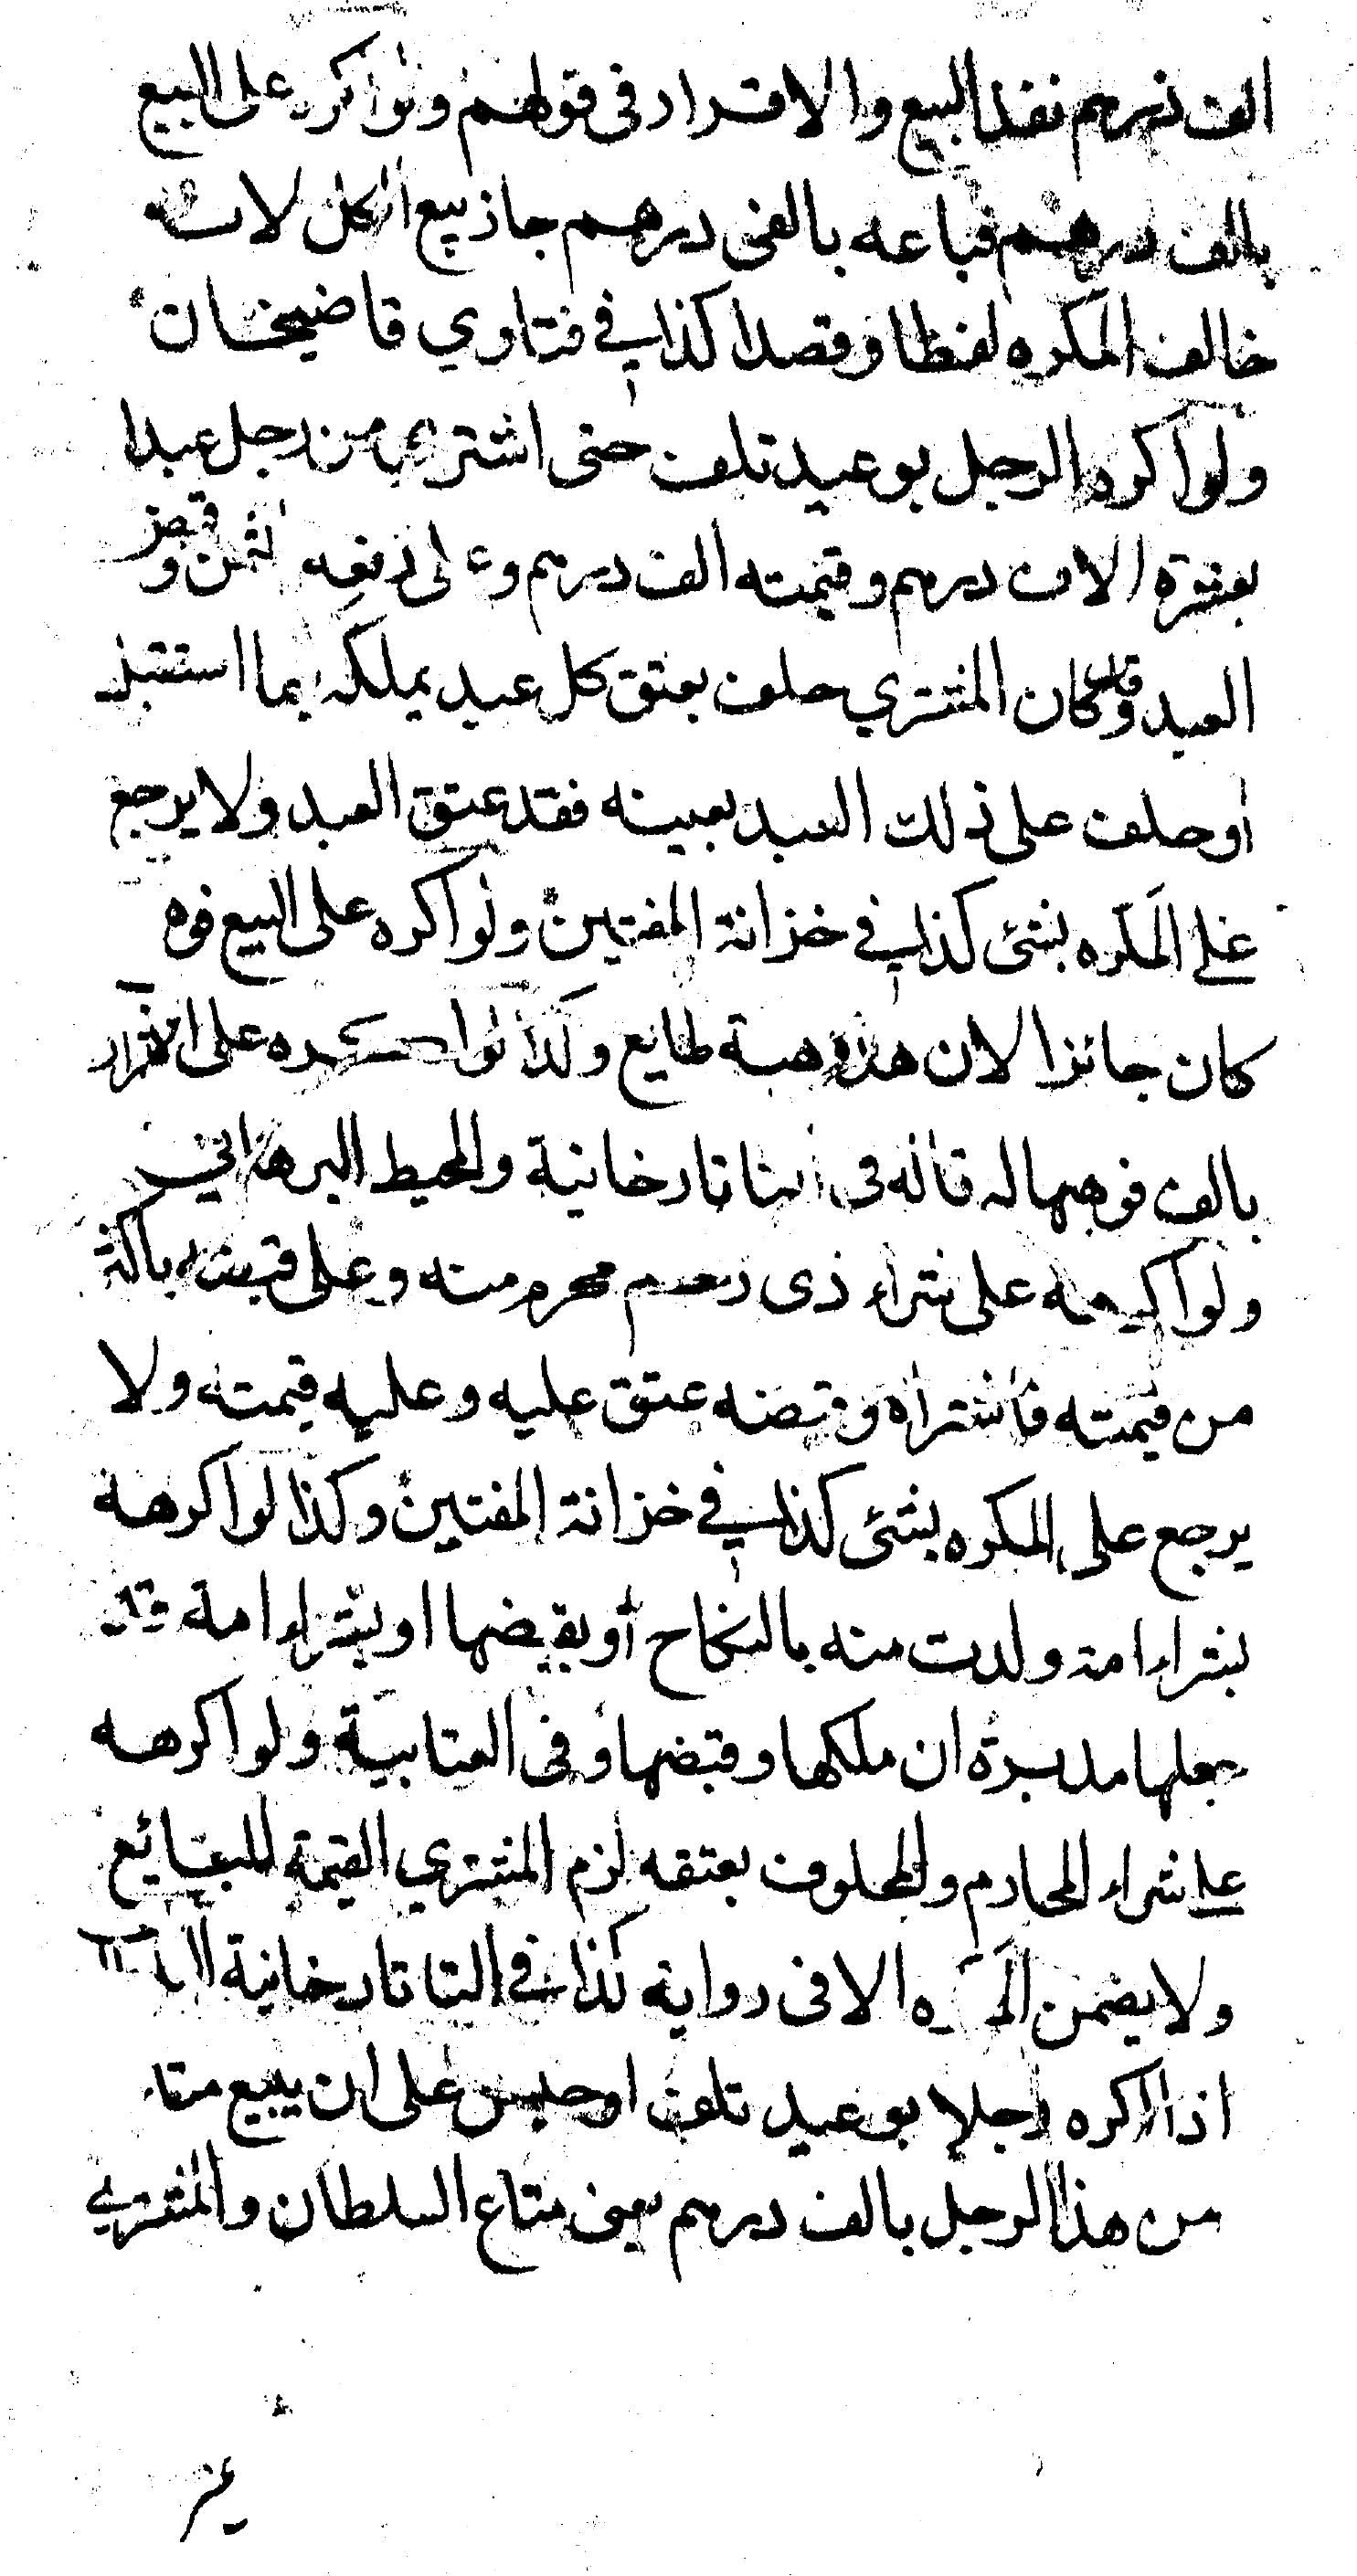 الف درهم نفذ البيع والاقرار فى قولهم ولو اكره على البيع
بالف درهم فباعه بالفى درهم جاز بيع الكل لانه
خالف المكره لفظا وقصدا كذا في فتاوي قاضيخان
ولو اكره الرجل بوعيد تلف حتى اشترى من رجل عبدا
بعشرة الاف درهم وقيمته الف درهم وعلى دفعه الثمن وقبض
العبد وقد كان المشتري حلف بعتق كل عبد يملكه بما استقبل
أو حلف على ذلك العبد بعينه فقد عتق العبد ولا يرجع
على المكره بشئ كذا في خزانة المفتين ولو اكره على البيع فوهب
كان جائزا لان هذه هبة طايع وكذا لو اكره على الاقرار
بالف فوهبها له قاله فى التاتارخانية والمحيط البرهاني
ولو اكرهه على شراء ذى رحم محرم منه وعلى قبضه باكثر
من قيمته فاشتراه وقبضه عتق عليه وعليه قيمته ولا
يرجع على المكره بشئ كذا في خزانة المفتين وكذا لو اكرهه
بشراء امة ولدت منه بالنكاح أو بقبضها او بشراء امة قد
جعلها مدبرة ان ملكها وقبضها وفى العتابية ولو اكرهه
على شراء المحارم والمحلوف بعتقه لزم المشتري القيمة للبائع
ولا يضمن المكره الا فى رواية كذا في التاتارخانية
اذا اكره رجلا بوعيد تلف او حبس على ان يبيع متاع
من هذا الرجل بالف درهم يعنى متاع السلطان والمشتري